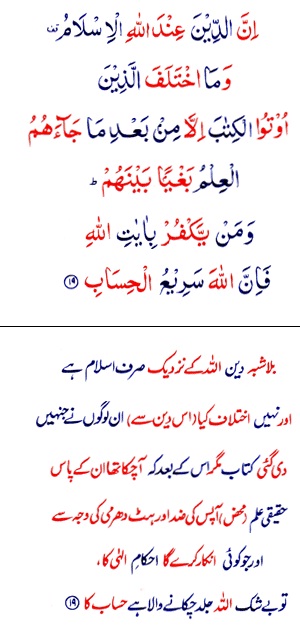 اِنَّ الدِّیْنَ عِنْدَ اللّٰهِ الْاِسْلَامُ قف
وَمَا اخْتَلَفَ الَّذِیْنَ
اُوْتُوا الْكِتٰبَ اِلَّا مِنْۢ بَعْدِ مَا جَآءَهُمُ
الْعِلْمُ بَغْیًۢا بَیْنَهُمْ ؕ
وَمَنْ یَّكْفُرْ بِاٰیٰتِ اللّٰهِ
فَاِنَّ اللّٰهَ سَرِیْعُ الْحِسَابِ ﴿۱۹﴾
بلاشبہ دین اللہ کے نزدیک صرف اسلام ہے
اور نہیں اختلاف کیا (اس دین سے) ان لوگوں نے جنہیں
دی گئی کتاب مگر اس کے بعد کہ آ چکا تھا ان کے پاس
حقیقی علم (محض) آپس کی ضد اور ہٹ دھرمی کی وجہ سے
اور جو کوئی انکار کرے گا احکامِ الٰہی کا،
تو بے شک اللہ جلد چکانے والا ہے حساب کا ﴿۱۹﴾